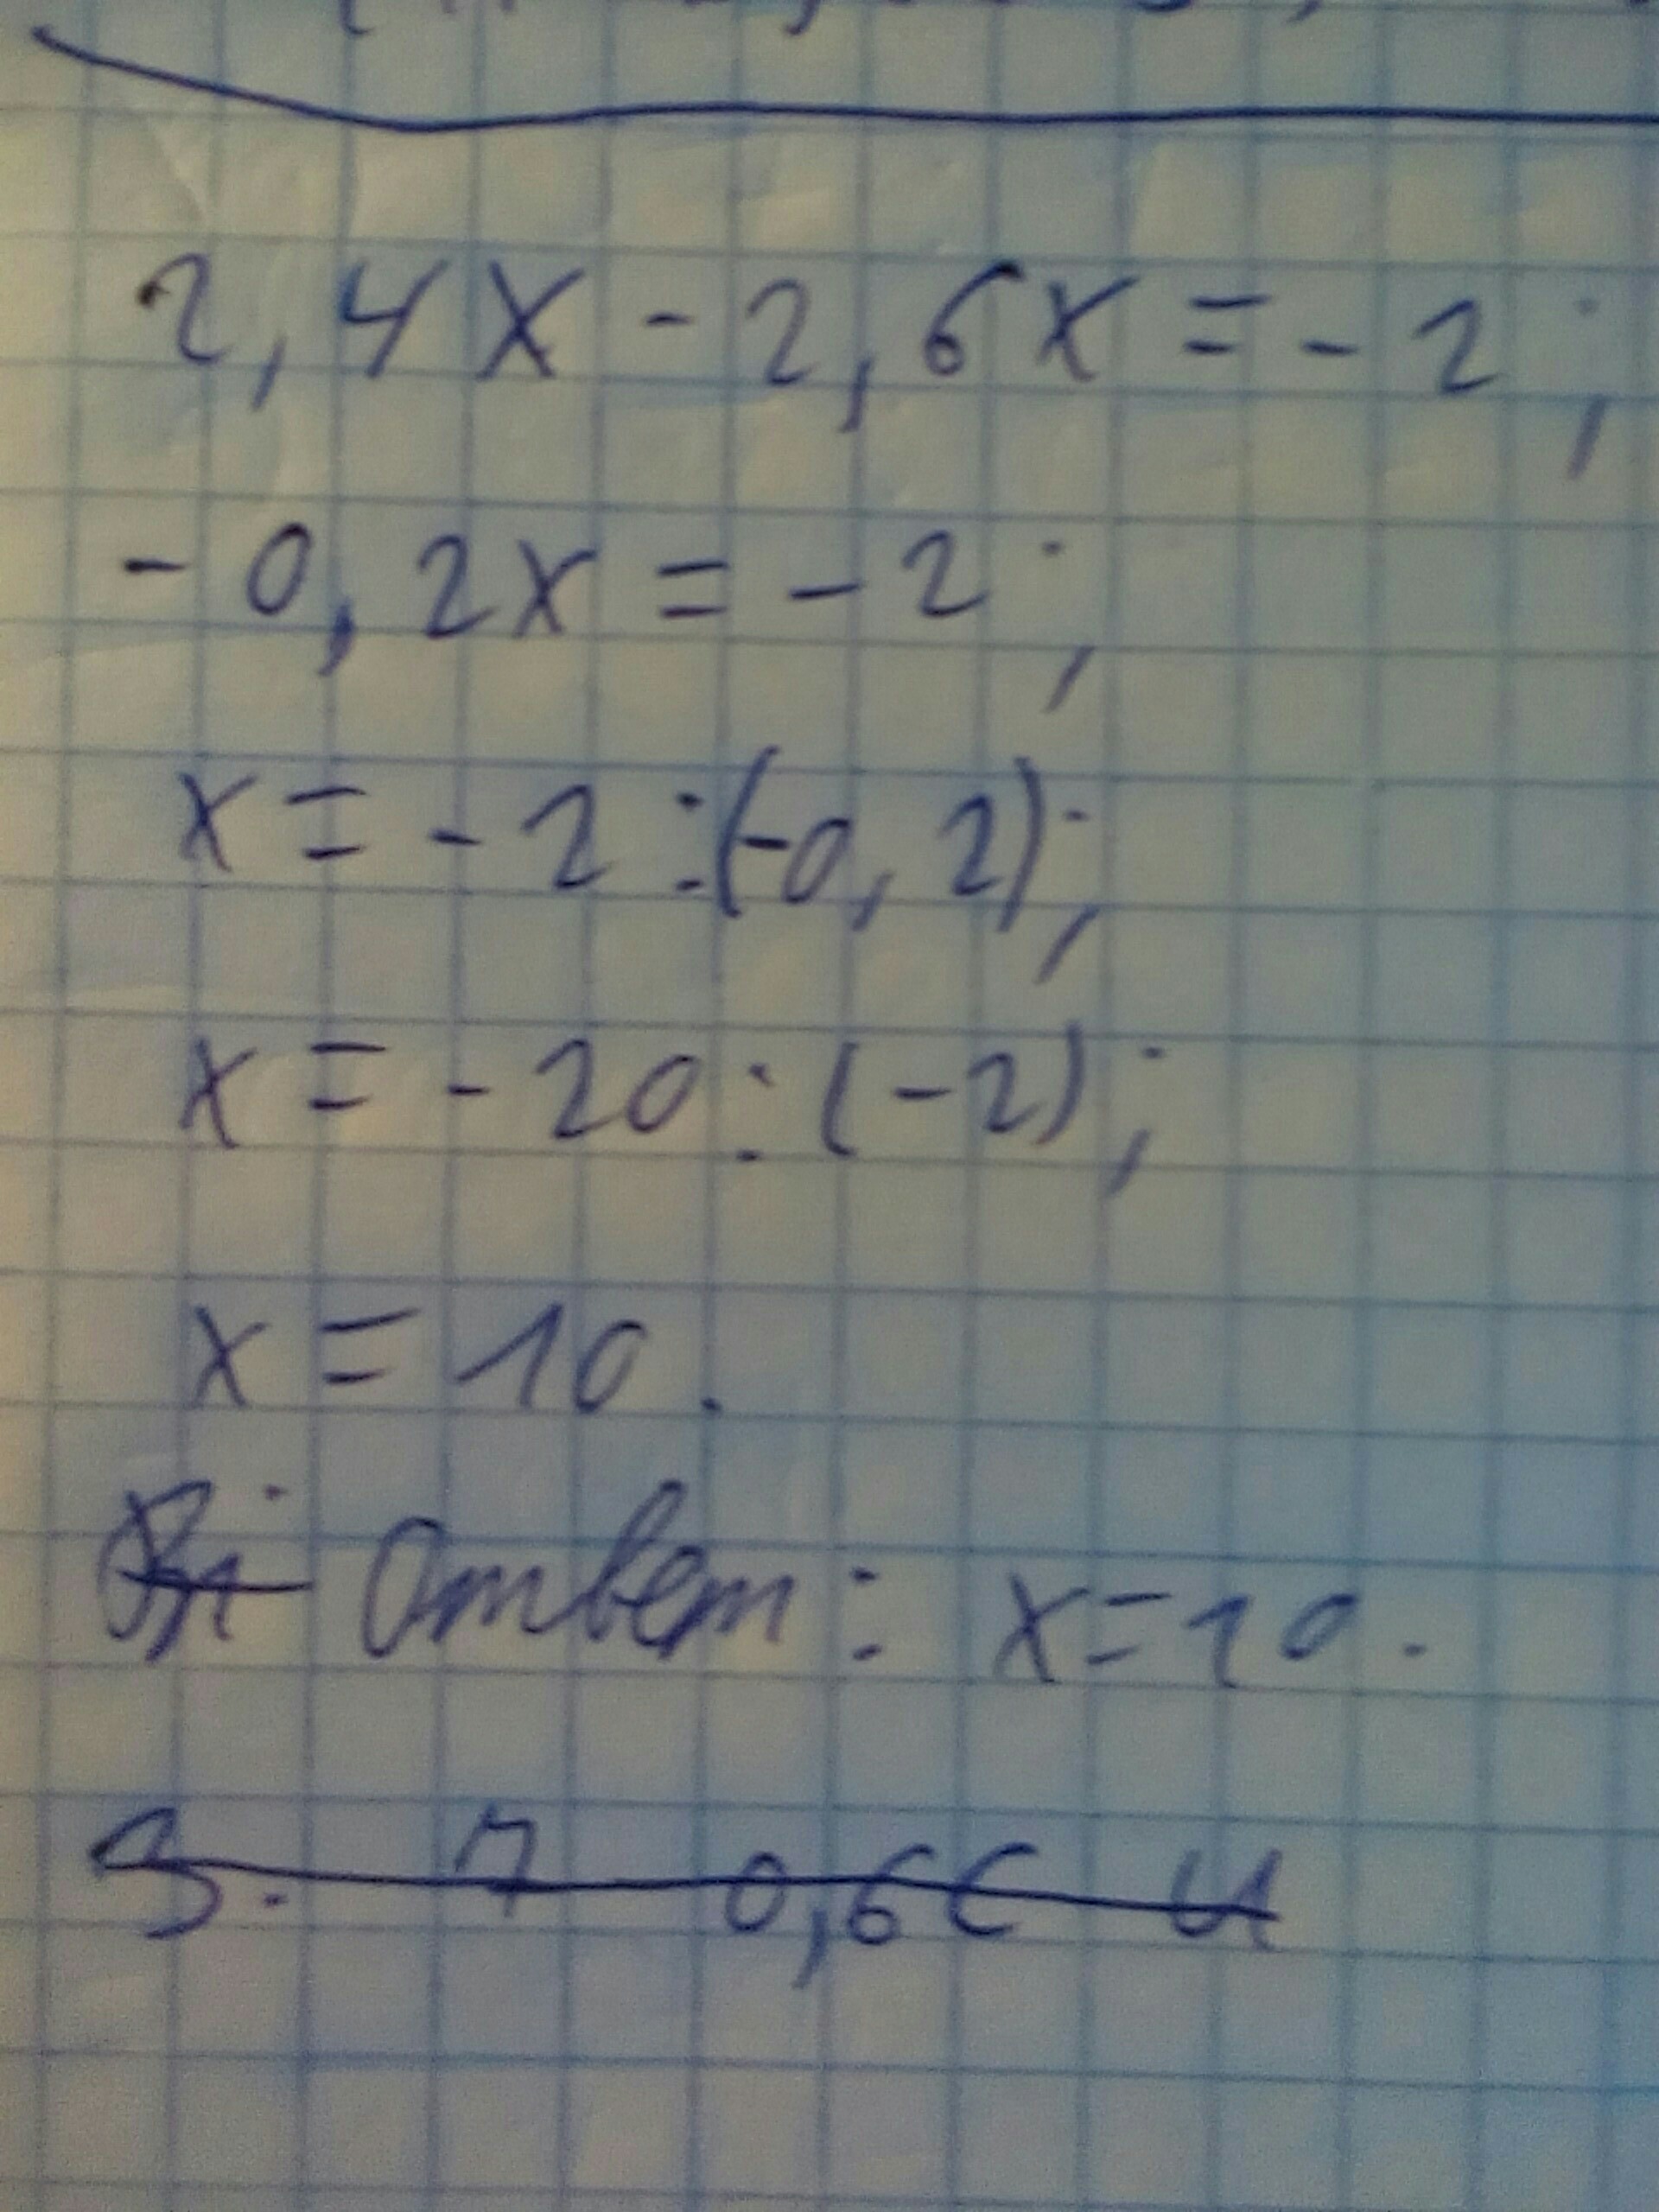 2,4x - 2,6x = - 2;
- 0,2x = - 2;
x = - 2 : (-0,2);
x = - 20 : (-2);
x = 10.
Ответ: x = 10.
3. 7 0,6